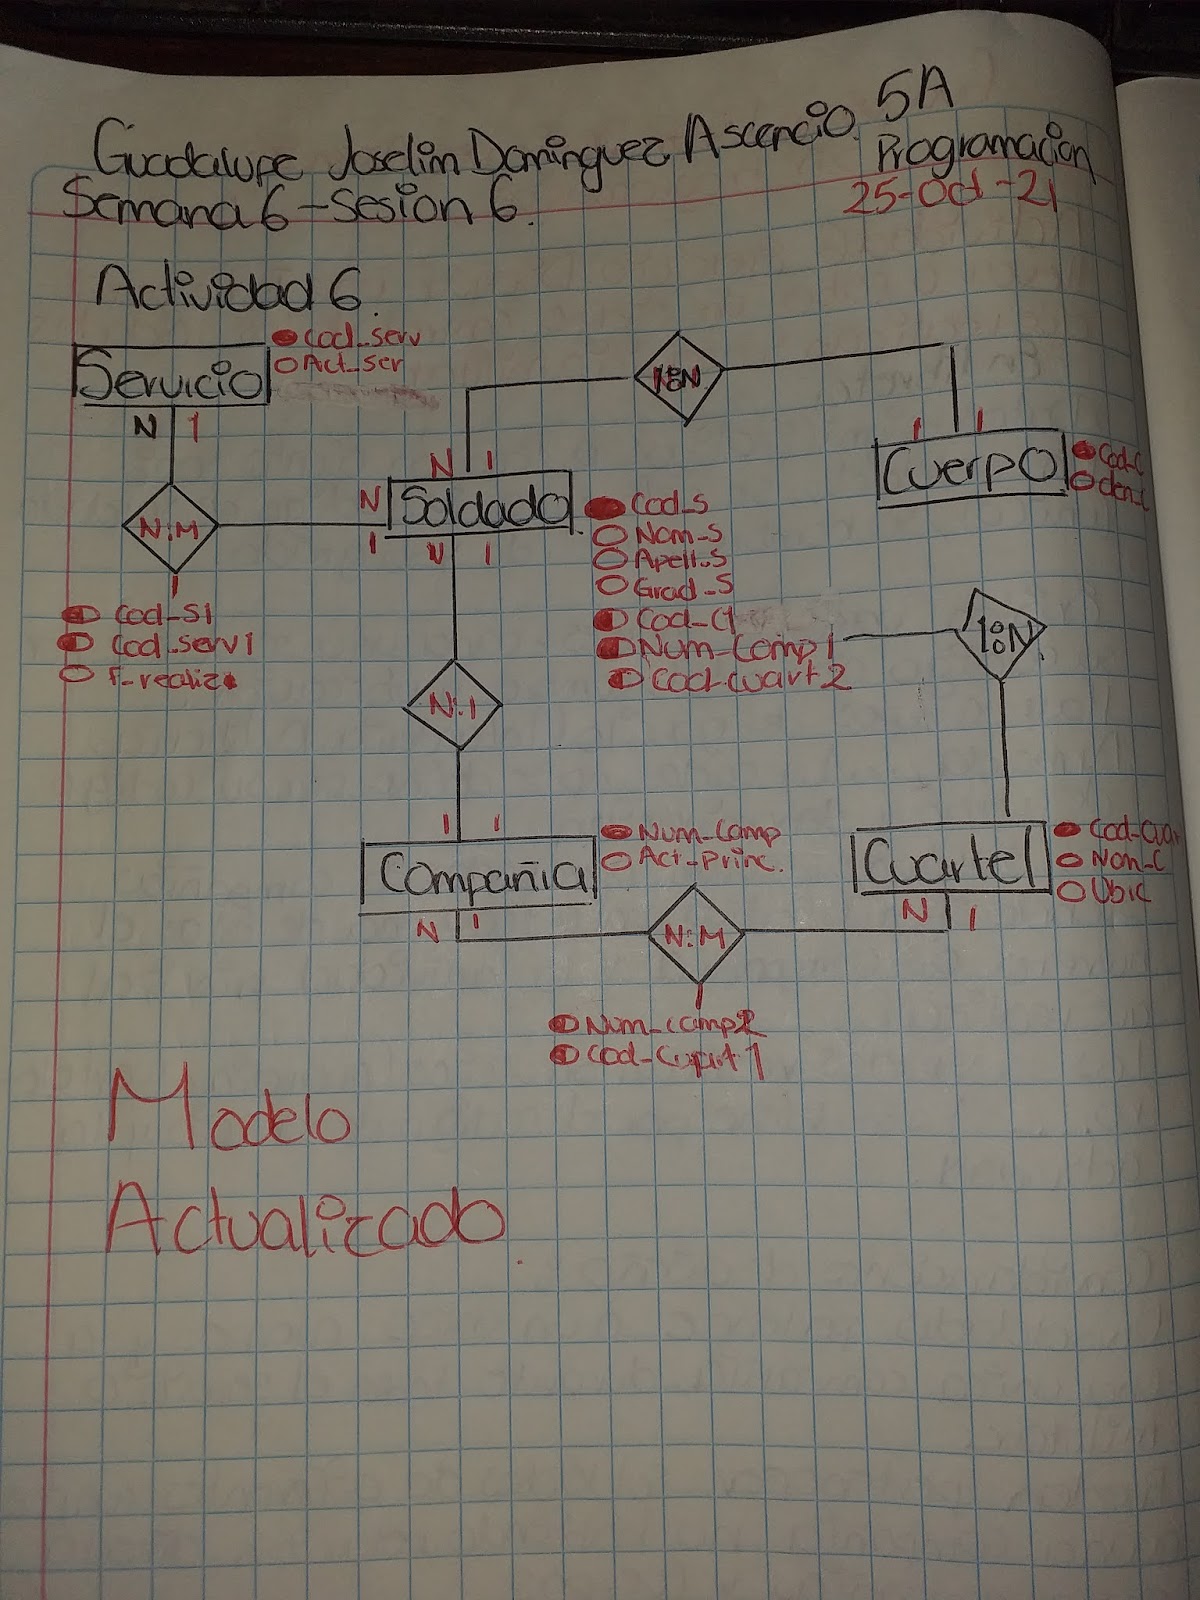 Guadalupe Joselin Dominguez Ascencio. 5A
Programacion
Semana 6 - Sesion 6.
25-Oct-21
Actividad 6.
Servicio
Cod_serv
Act_ser
N 1
N:M
Cod_S1
Cod_serv1
F_realiz
N 1
N
1
Soldado
N 1
Cod_S
Nom_S
Apell_S
Grad_S
Cod_C1
Num_Comp1
Cod_Cuart2
1:N
1 1
Cuerpo
Cod_C
den_C
1:N
N:1
1 1
Compañia
Num_Comp
Act_princ.
N 1
N:M
Num_comp2
Cod_Cuart1
Cuartel
Cod_Cuar
Nom_C
Ubic
N 1
Modelo
Actualizado.